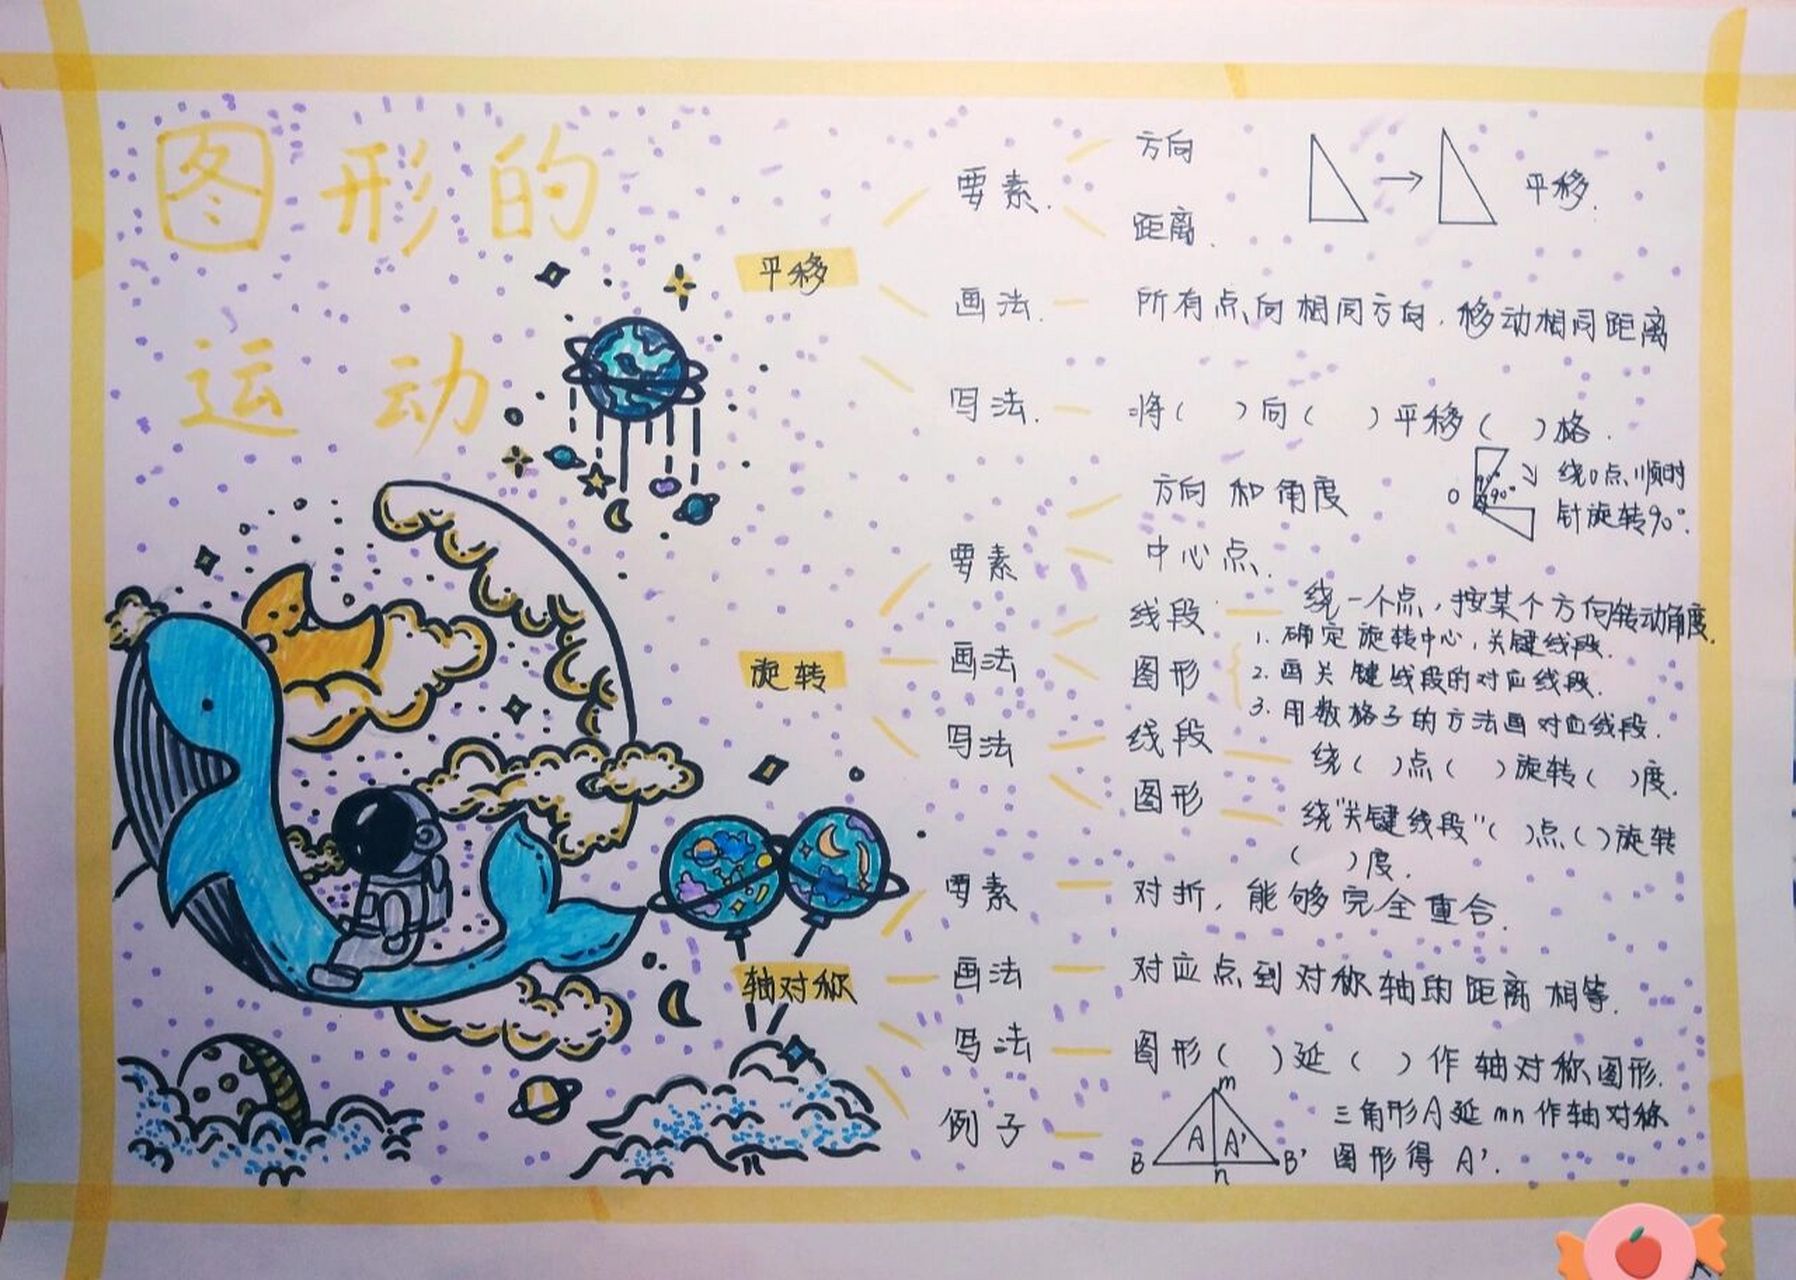 图形的
运动
平移
要素.
方向
距离.
平移.
画法.
所有点向相同方向,移动相同距离
写法.
将( )向( )平移( )格.
旋转
要素
方向和角度
中心点.
O
90°
绕O点顺时
针旋转90°.
画法
线段
绕一个点,按某个方向转动角度.
图形
1. 确定旋转中心,关键线段.
2. 画关键线段的对应线段.
3. 用数格子的方法画对应线段.
写法
线段
绕( )点( )旋转( )度.
图形
绕"关键线段"( )点( )旋转
( )度.
轴对称
要素
对折,能够完全重合.
画法
对应点到对称轴的距离相等.
写法
图形( )延( )作轴对称图形.
例子
m
A A'
B n B'
三角形A延mn作轴对称
图形得A'.